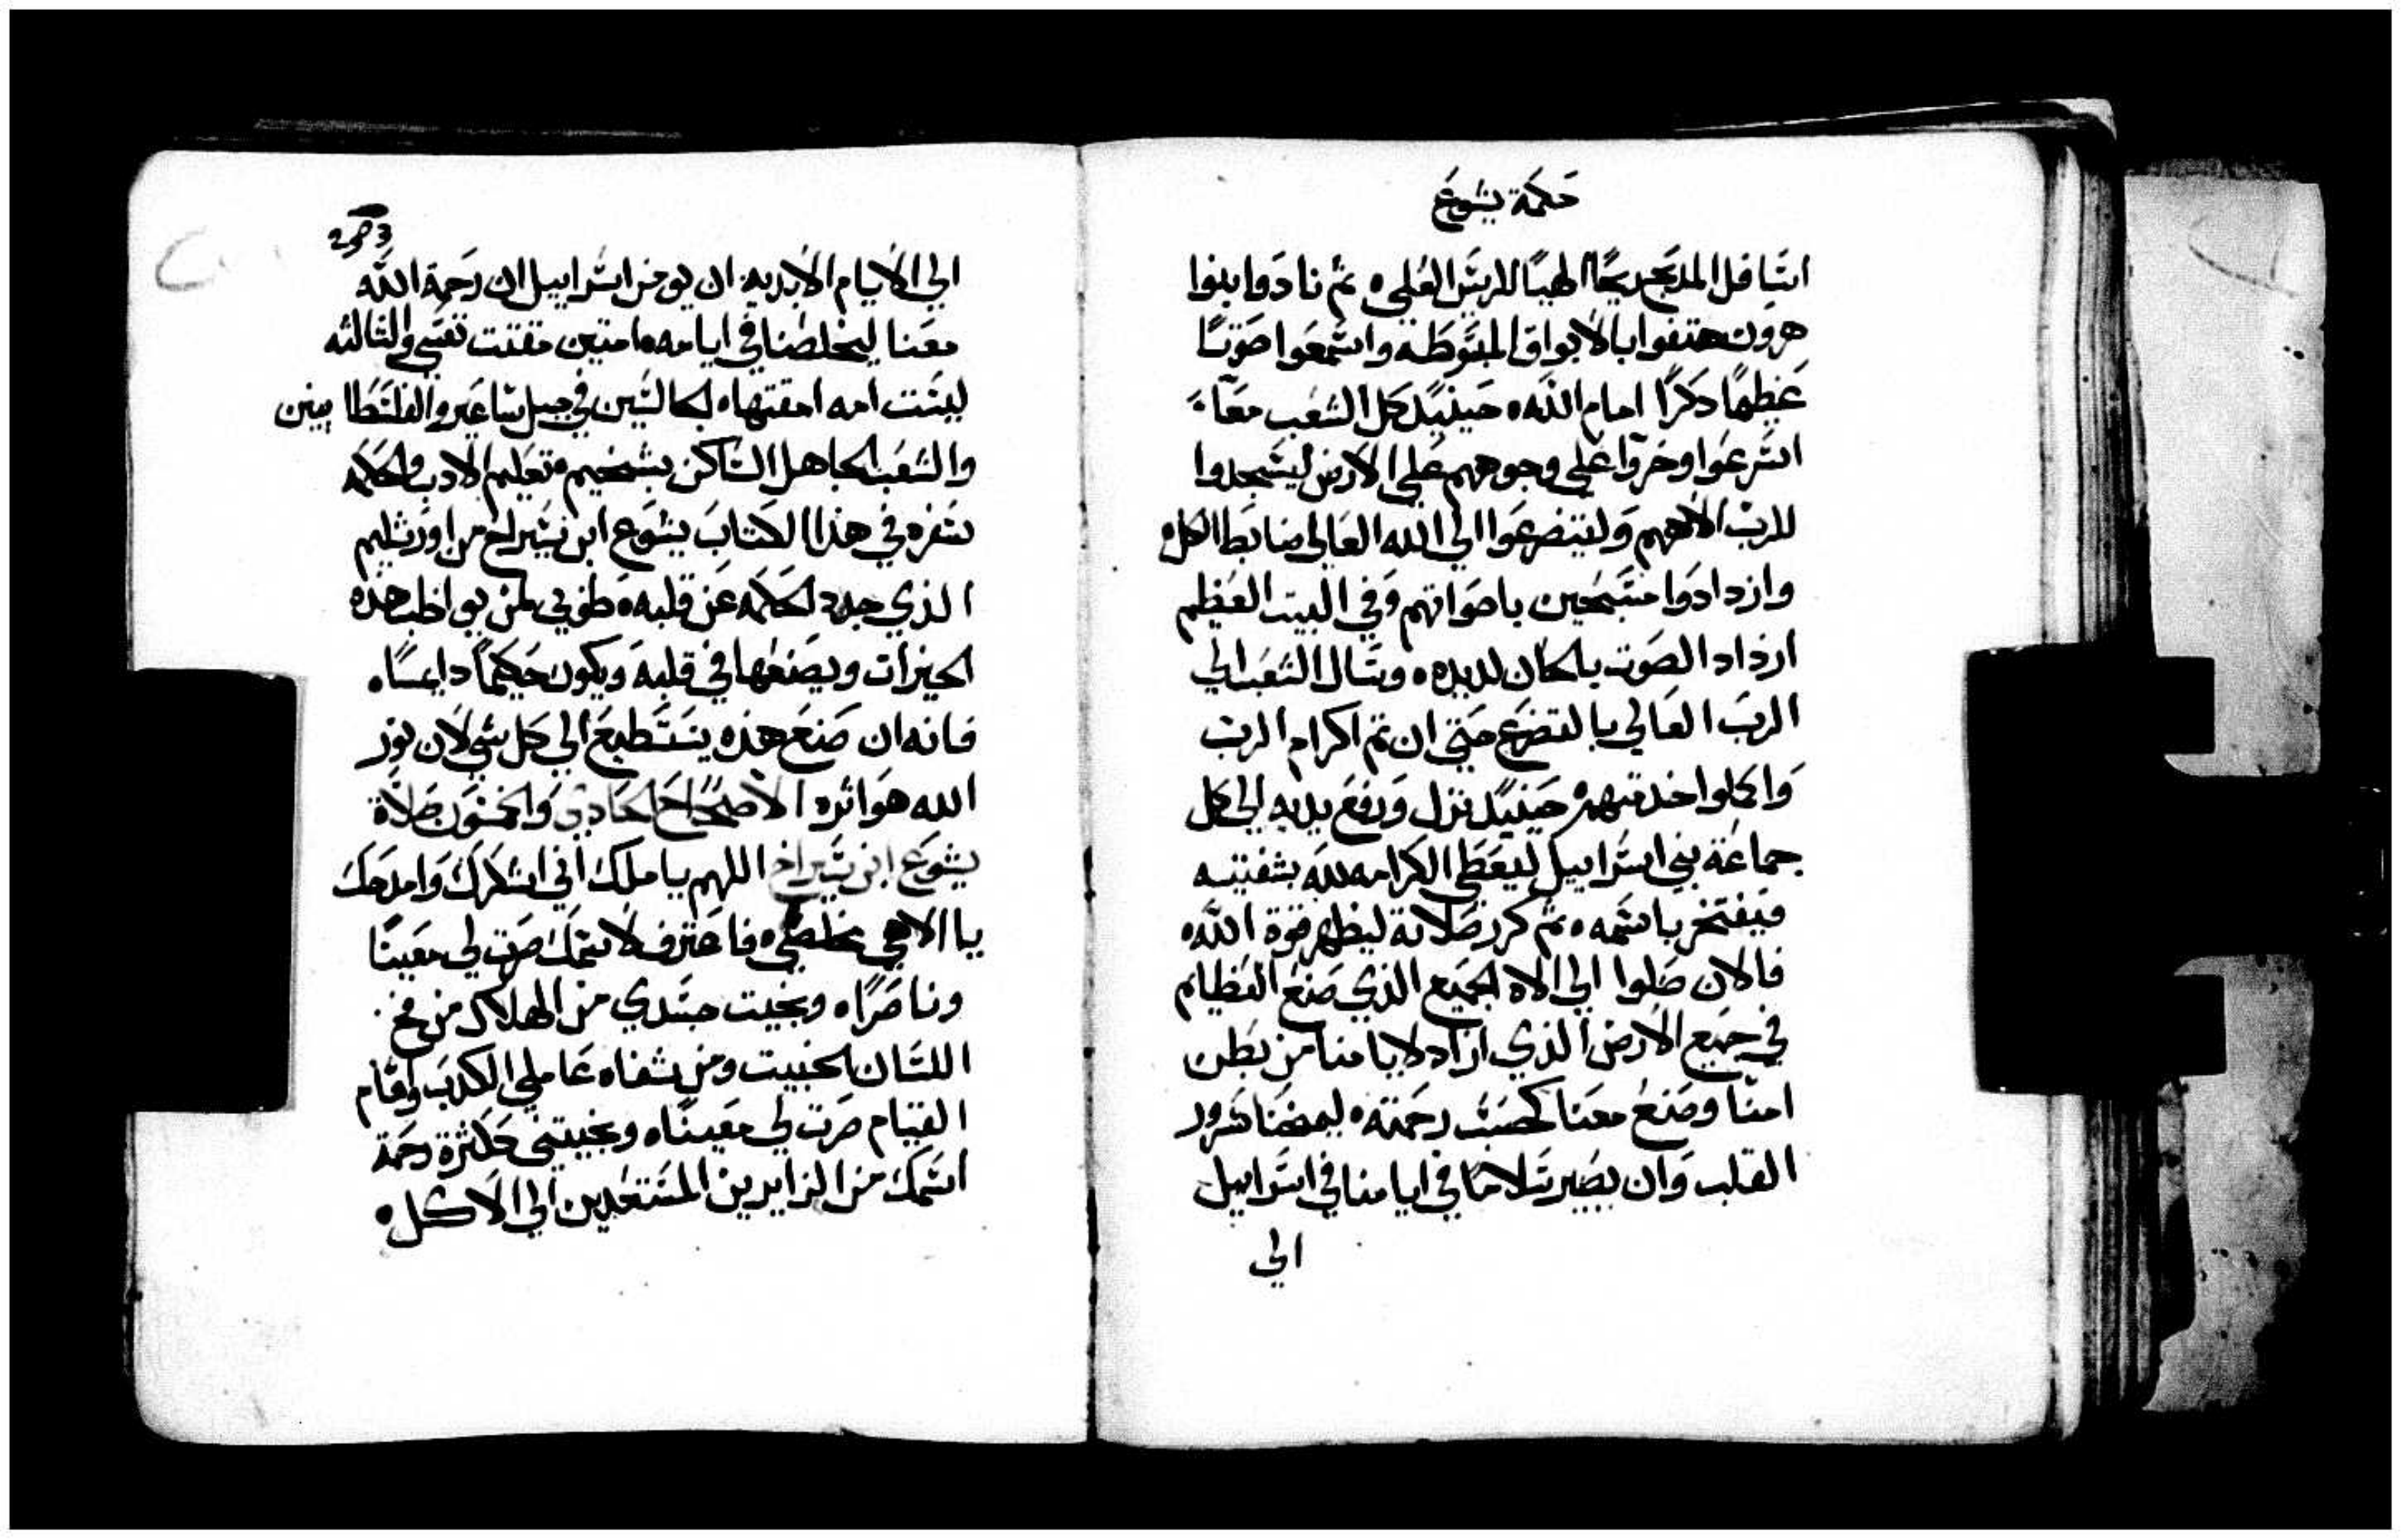 حكمة يشوع
اسافل المدبح ريحًا الهيًا للريس العلي ه ثم نادوا بنوا
هرون هتفوا بالابواق المبسوطه واسمعوا صوتًا
عظيمًا دكرًا امام الله ه حينيدٍ كل الشعب معًا
اسرعوا وخروا علي وجوههم علي الارض ليسجدوا
للرب الاههم وليتضرعوا الي الله العالي ضابط الكل ه
وازدادوا مسبحين باصواتهم وفي البيت العظيم
ازداد الصوت بالحان لديده ه وسال الشعب الي
الرب العالي بالتضرع حتي ان تم اكرام الرب
واكملوا خدمتهم ه حينيدٍ نزل ورفع يديه الي كل
جماعة بني اسراييل ليعطي الكرامه لله بشفتيه
ويفتخر باسمه ه ثم كرر صلاته ليظهر قوة الله ه
فالان صلوا الي الاه الجميع الذي صنع العظايم
في جميع الارض الذي ازاد لايامنا من بطن
امنا وصنع معنا كحسب رحمته ه ليمنحنا سرور
القلب وان يصير سلامًا في ايامنا في اسراييل
الي
الي الايام الابديه ان يومن اسراييل ان رحمة الله
معنا ليخلصنا في ايامه ه امتين مقتت نفسي والتالته
ليست امه امقتها ه الجالسين في جبل ساعير والفلسطانيين
والشعب الجاهل الساكن بشخيم ه تعليم الادب والحكمه
سفره في هذا الكتاب يشوع ابن سيراخ من اورشليم
الذي جدد الحكمه عن قلبه ه طوبي لمن يواظب هذه
الخيرات ويصنعها في قلبه ويكون حكيمًا دايمًا ه
فانه ان صنع هذه يستطيع الي كل شي لان نور
الله هو اثره الاصحاح الحادي والخمسون صلاة
يشوع ابن سيراخ اللهم يا ملك اني اشكرك وامدحك
يا الاهي مخلصي ه فاعترف لاسمك صرت لي معينًا
وناصرًا ه ونجيت جسدي من الهلاك من فخ
اللسان الخبيت ومن شفاه عاملي الكدب وامام
القيام صرت لي معينًا ه ونجيتني ككثرة رحمة
اسمك من الزايرين المستعدين الي الاكل ه